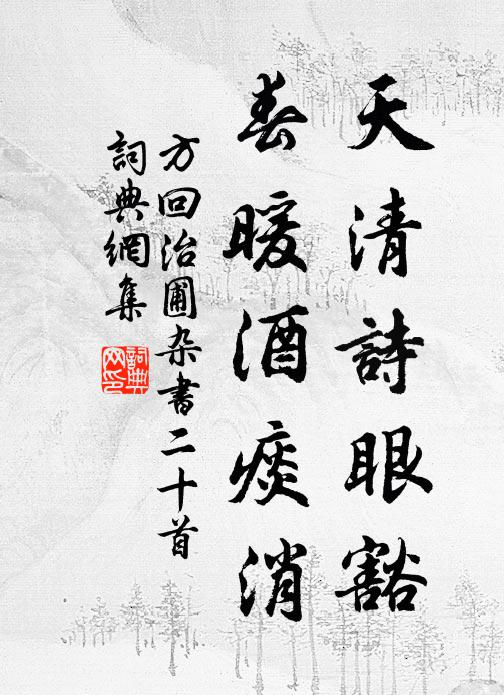 天清詩眼豁
春暖酒痰消
方回治圃杂書二十首
詞典網集
詞典
网印